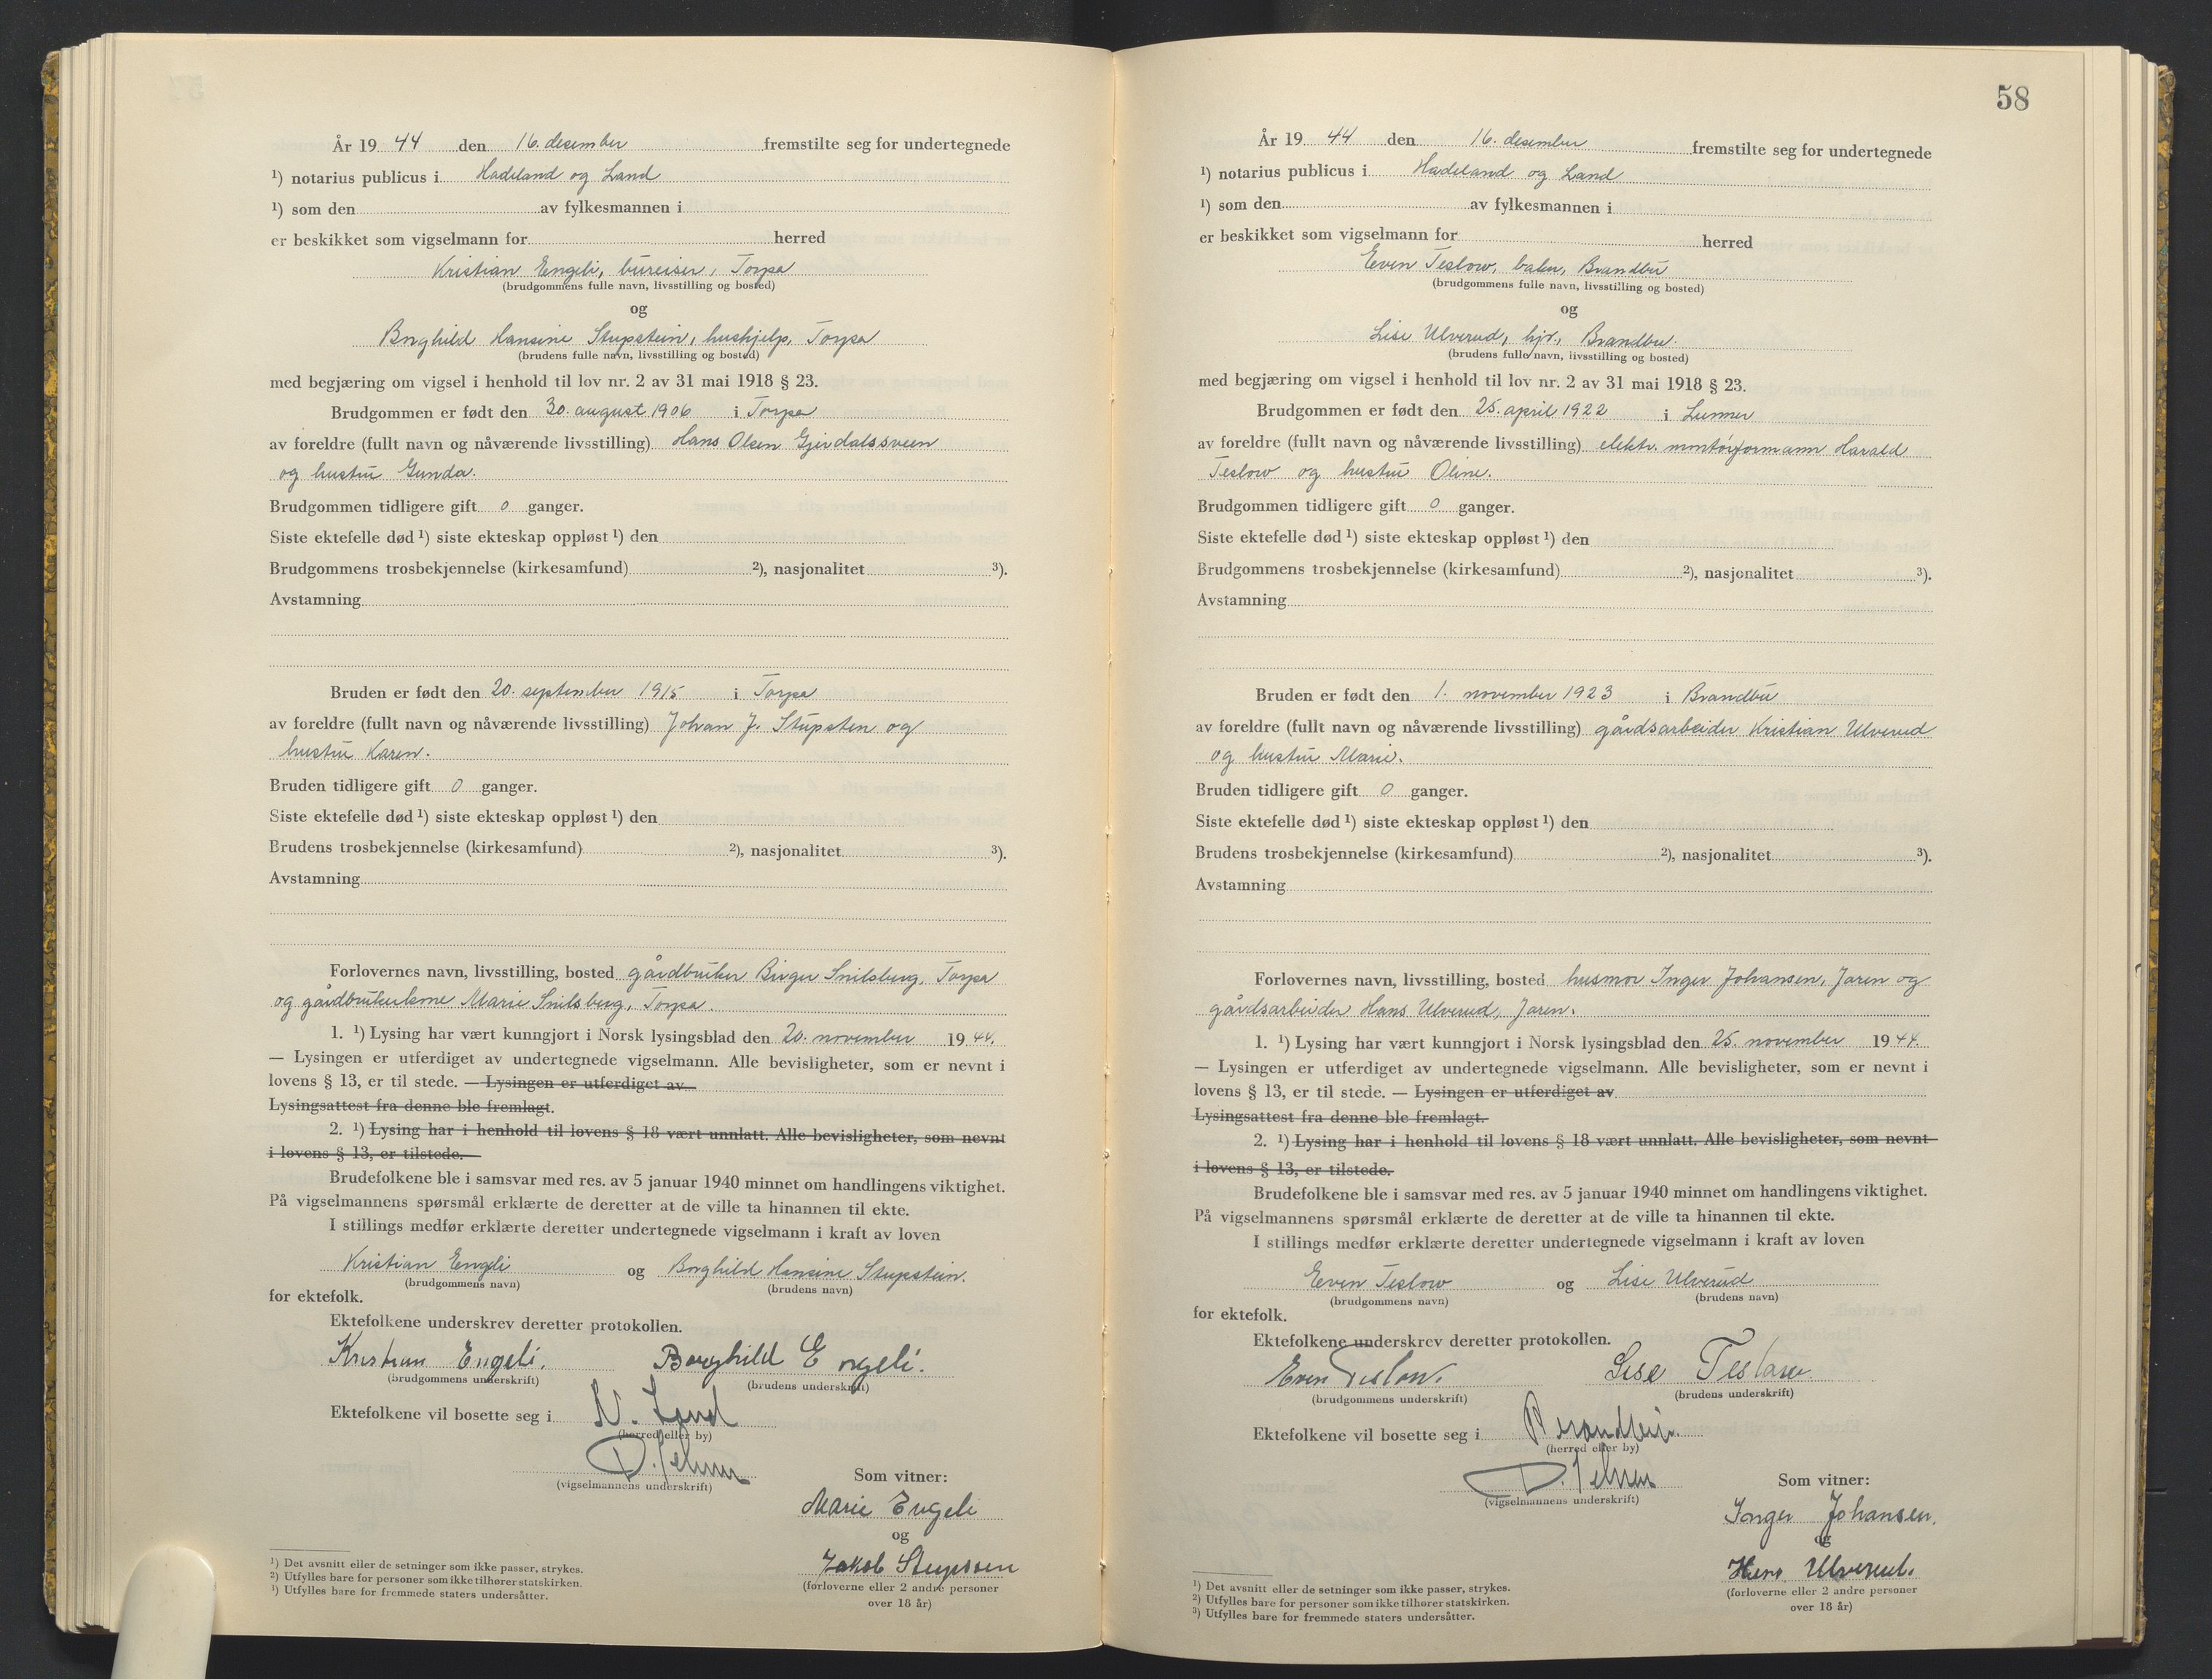 År 19 44 den 16. desember fremstilte seg for undertegnede
¹) notarius publicus i Hadeland og Land
¹) som den av fylkesmannen i
er beskikket som vigselmann for herred
Kristian Engeli, bureiser, Torpa
(brudgommens fulle navn, livsstilling og bosted)
og
Borghild Hansine Stupstein, hushjelp, Torpa
(brudens fulle navn, livsstilling og bosted)
med begjæring om vigsel i henhold til lov nr. 2 av 31 mai 1918 § 23.
Brudgommen er født den 30. august 1906 i Torpa
av foreldre (fullt navn og nåværende livsstilling) Hans Olsen Gjerdalssveen
og hustru Gunda.
Brudgommen tidligere gift 0 ganger.
Siste ektefelle død ¹) siste ekteskap oppløst ¹) den
Brudgommens trosbekjennelse (kirkesamfund) ²), nasjonalitet ³).
Avstamning
Bruden er født den 20. september 1915 i Torpa
av foreldre (fullt navn og nåværende livsstilling) Johan J. Stupsten og
hustru Karen.
Bruden tidligere gift 0 ganger.
Siste ektefelle død ¹) siste ekteskap oppløst ¹) den
Brudens trosbekjennelse (kirkesamfund) ²), nasjonalitet ³).
Avstamning
Forlovernes navn, livsstilling, bosted gårdbruker Birger Snilsberg, Torpa
og gårdbrukerkone Marie Snilsberg, Torpa.
1. ¹) Lysing har vært kunngjort i Norsk lysingsblad den 20. november 19 44.
— Lysingen er utferdiget av undertegnede vigselmann. Alle bevisligheter, som er nevnt i
lovens § 13, er til stede. — Lysingen er utferdiget av
Lysingsattest fra denne ble fremlagt.
2. ¹) Lysing har i henhold til lovens § 18 vært unnlatt. Alle bevisligheter, som nevnt
i lovens § 13, er tilstede.
Brudefolkene ble i samsvar med res. av 5 januar 1940 minnet om handlingens viktighet.
På vigselmannens spørsmål erklærte de deretter at de ville ta hinannen til ekte.
I stillings medfør erklærte deretter undertegnede vigselmann i kraft av loven
Kristian Engeli og Borghild Hansine Stupstein.
(brudgommens navn) (brudens navn)
for ektefolk.
Ektefolkene underskrev deretter protokollen.
Kristian Engeli. Borghild Engeli.
(brudgommens underskrift) (brudens underskrift)
Ektefolkene vil bosette seg i N. Land
(herred eller by)
(vigselmannens underskrift)
Som vitner:
Marie Engeli
og
Jakob Stupsteen
(forloverne eller 2 andre personer
over 18 år)
¹) Det avsnitt eller de setninger som ikke passer, strykes.
²) Utfylles bare for personer som ikke tilhører statskirken.
³) Utfylles bare for fremmede staters undersåtter.
58
År 19 44 den 16. desember fremstilte seg for undertegnede
¹) notarius publicus i Hadeland og Land
¹) som den av fylkesmannen i
er beskikket som vigselmann for herred
Even Teslow, baker, Brandbu
(brudgommens fulle navn, livsstilling og bosted)
og
Lise Ulverud, hjv., Brandbu.
(brudens fulle navn, livsstilling og bosted)
med begjæring om vigsel i henhold til lov nr. 2 av 31 mai 1918 § 23.
Brudgommen er født den 25. april 1922 i Lunner
av foreldre (fullt navn og nåværende livsstilling) elektr. montørformann Harald
Teslow og hustru Oline.
Brudgommen tidligere gift 0 ganger.
Siste ektefelle død ¹) siste ekteskap oppløst ¹) den
Brudgommens trosbekjennelse (kirkesamfund) ²), nasjonalitet ³).
Avstamning
Bruden er født den 1. november 1923 i Brandbu
av foreldre (fullt navn og nåværende livsstilling) gårdsarbeider Kristian Ulverud
og hustru Marie.
Bruden tidligere gift 0 ganger.
Siste ektefelle død ¹) siste ekteskap oppløst ¹) den
Brudens trosbekjennelse (kirkesamfund) ²), nasjonalitet ³).
Avstamning
Forlovernes navn, livsstilling, bosted husmor Inger Johansen, Jaren og
gårdsarbeider Hans Ulverud, Jaren.
1. ¹) Lysing har vært kunngjort i Norsk lysingsblad den 25. november 19 44.
— Lysingen er utferdiget av undertegnede vigselmann. Alle bevisligheter, som er nevnt i
lovens § 13, er til stede. — Lysingen er utferdiget av
Lysingsattest fra denne ble fremlagt.
2. ¹) Lysing har i henhold til lovens § 18 vært unnlatt. Alle bevisligheter, som nevnt
i lovens § 13, er tilstede.
Brudefolkene ble i samsvar med res. av 5 januar 1940 minnet om handlingens viktighet.
På vigselmannens spørsmål erklærte de deretter at de ville ta hinannen til ekte.
I stillings medfør erklærte deretter undertegnede vigselmann i kraft av loven
Even Teslow og Lise Ulverud
(brudgommens navn) (brudens navn)
for ektefolk.
Ektefolkene underskrev deretter protokollen.
Even Teslow. Lise Teslow.
(brudgommens underskrift) (brudens underskrift)
Ektefolkene vil bosette seg i Brandbu.
(herred eller by)
(vigselmannens underskrift)
Som vitner:
Inger Johansen.
og
Hans Ulverud.
(forloverne eller 2 andre personer
over 18 år)
¹) Det avsnitt eller de setninger som ikke passer, strykes.
²) Utfylles bare for personer som ikke tilhører statskirken.
³) Utfylles bare for fremmede staters undersåtter.